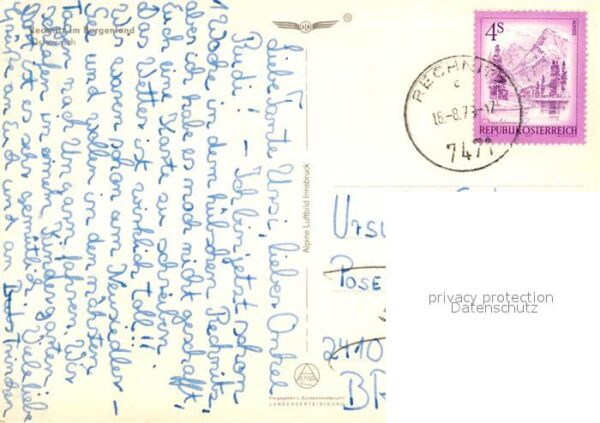 Rechnitz im Burgenland
Österreich
Liebe Tante Ursi, lieber Onkel
Rudi! - Ich bin jetzt schon
1 Woche in dem hübschen Rechnitz,
aber ich habe es noch nicht geschafft,
Euch eine Karte zu schreiben.
Das Wetter ist wirklich toll!!
Wir waren schon am Neusiedler-
See und wollen in den nächsten
Tagen nach Ungarn fahren. Wir
schlafen in einem Kindergarten.
Es ist sehr gemütlich. Viele liebe
Grüße an Euch und an
Alpine Luftbild Innsbruck
Freigegeben v. Bundesministerium f.
LANDESVERTEIDIGUNG
®
4S
REPUBLIK ÖSTERREICH
RECHNITZ
c
16.-8.79-17
7471
URSU
POSE
2410
BR
privacy protection
Datenschutz